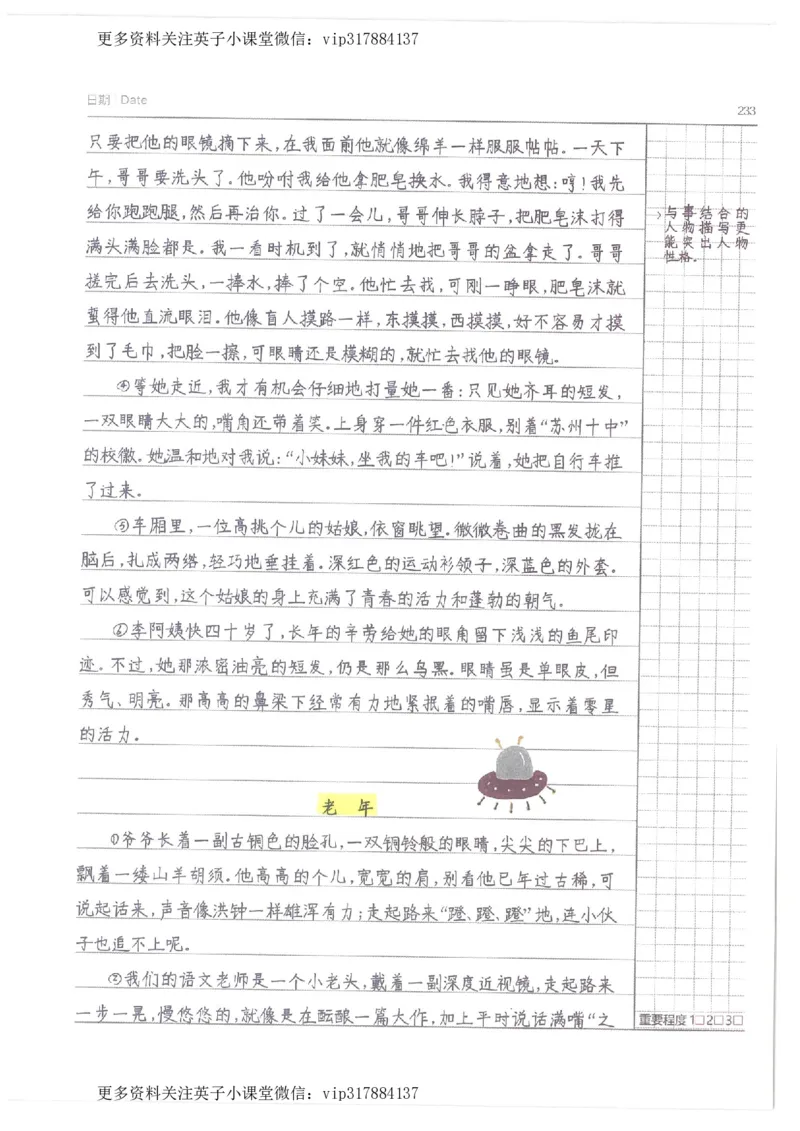 更多资料关注英子小课堂微信：vip317884137
日期 Date
233
只要把他的眼镜摘下来，在我面前他就像绵羊一样服服帖帖。一天下
午，哥哥要洗头了。他吩咐我给他拿肥皂换水。我得意地想：哼！我先
给你跑跑腿，然后再治你。过了一会儿，哥哥伸长脖子，把肥皂沫打得
满头满脸都是。我一看时机到了，就悄悄地把哥哥的盆拿走了。哥哥
搓完后去洗头，一捧水，捧了个空。他忙去找，可刚一睁眼，肥皂沫就
蜇得他直流眼泪。他像盲人摸路一样，东摸摸，西摸摸，好不容易才摸
到了毛巾，把脸一擦，可眼睛还是模糊的，就忙去找他的眼镜。
→与事结合的
人物描写更
能突出人物
性格。
④等她走近，我才有机会仔细地打量她一番：只见她齐耳的短发，
一双眼睛大大的，嘴角还带着笑。上身穿一件红色衣服，别着“苏州十中”
的校徽。她温和地对我说：“小妹妹，坐我的车吧！”说着，她把自行车推
了过来。
⑤车厢里，一位高挑个儿的姑娘，依窗眺望。微微卷曲的黑发拢在
脑后，扎成两绺，轻巧地垂挂着。深红色的运动衫领子，深蓝色的外套。
可以感觉到，这个姑娘的身上充满了青春的活力和蓬勃的朝气。
⑥李阿姨快四十岁了，长年的辛劳给她的眼角留下浅浅的鱼尾印
迹。不过，她那浓密油亮的短发，仍是那么乌黑。眼睛虽是单眼皮，但
秀气、明亮。那高高的鼻梁下经常有力地紧抿着的嘴唇，显示着零星
的活力。
老 年
①爷爷长着一副古铜色的脸孔，一双铜铃般的眼睛，尖尖的下巴上，
飘着一缕山羊胡须。他高高的个儿，宽宽的肩，别看他已年过古稀，可
说起话来，声音像洪钟一样雄浑有力；走起路来“蹬、蹬、蹬”地，连小伙
子也追不上呢。
②我们的语文老师是一个小老头，戴着一副深度近视镜，走起路来
一步一晃，慢悠悠的，就像是在酝酿一篇大作，加上平时说话满嘴“之
重要程度 1□2□3□
更多资料关注英子小课堂微信：vip317884137